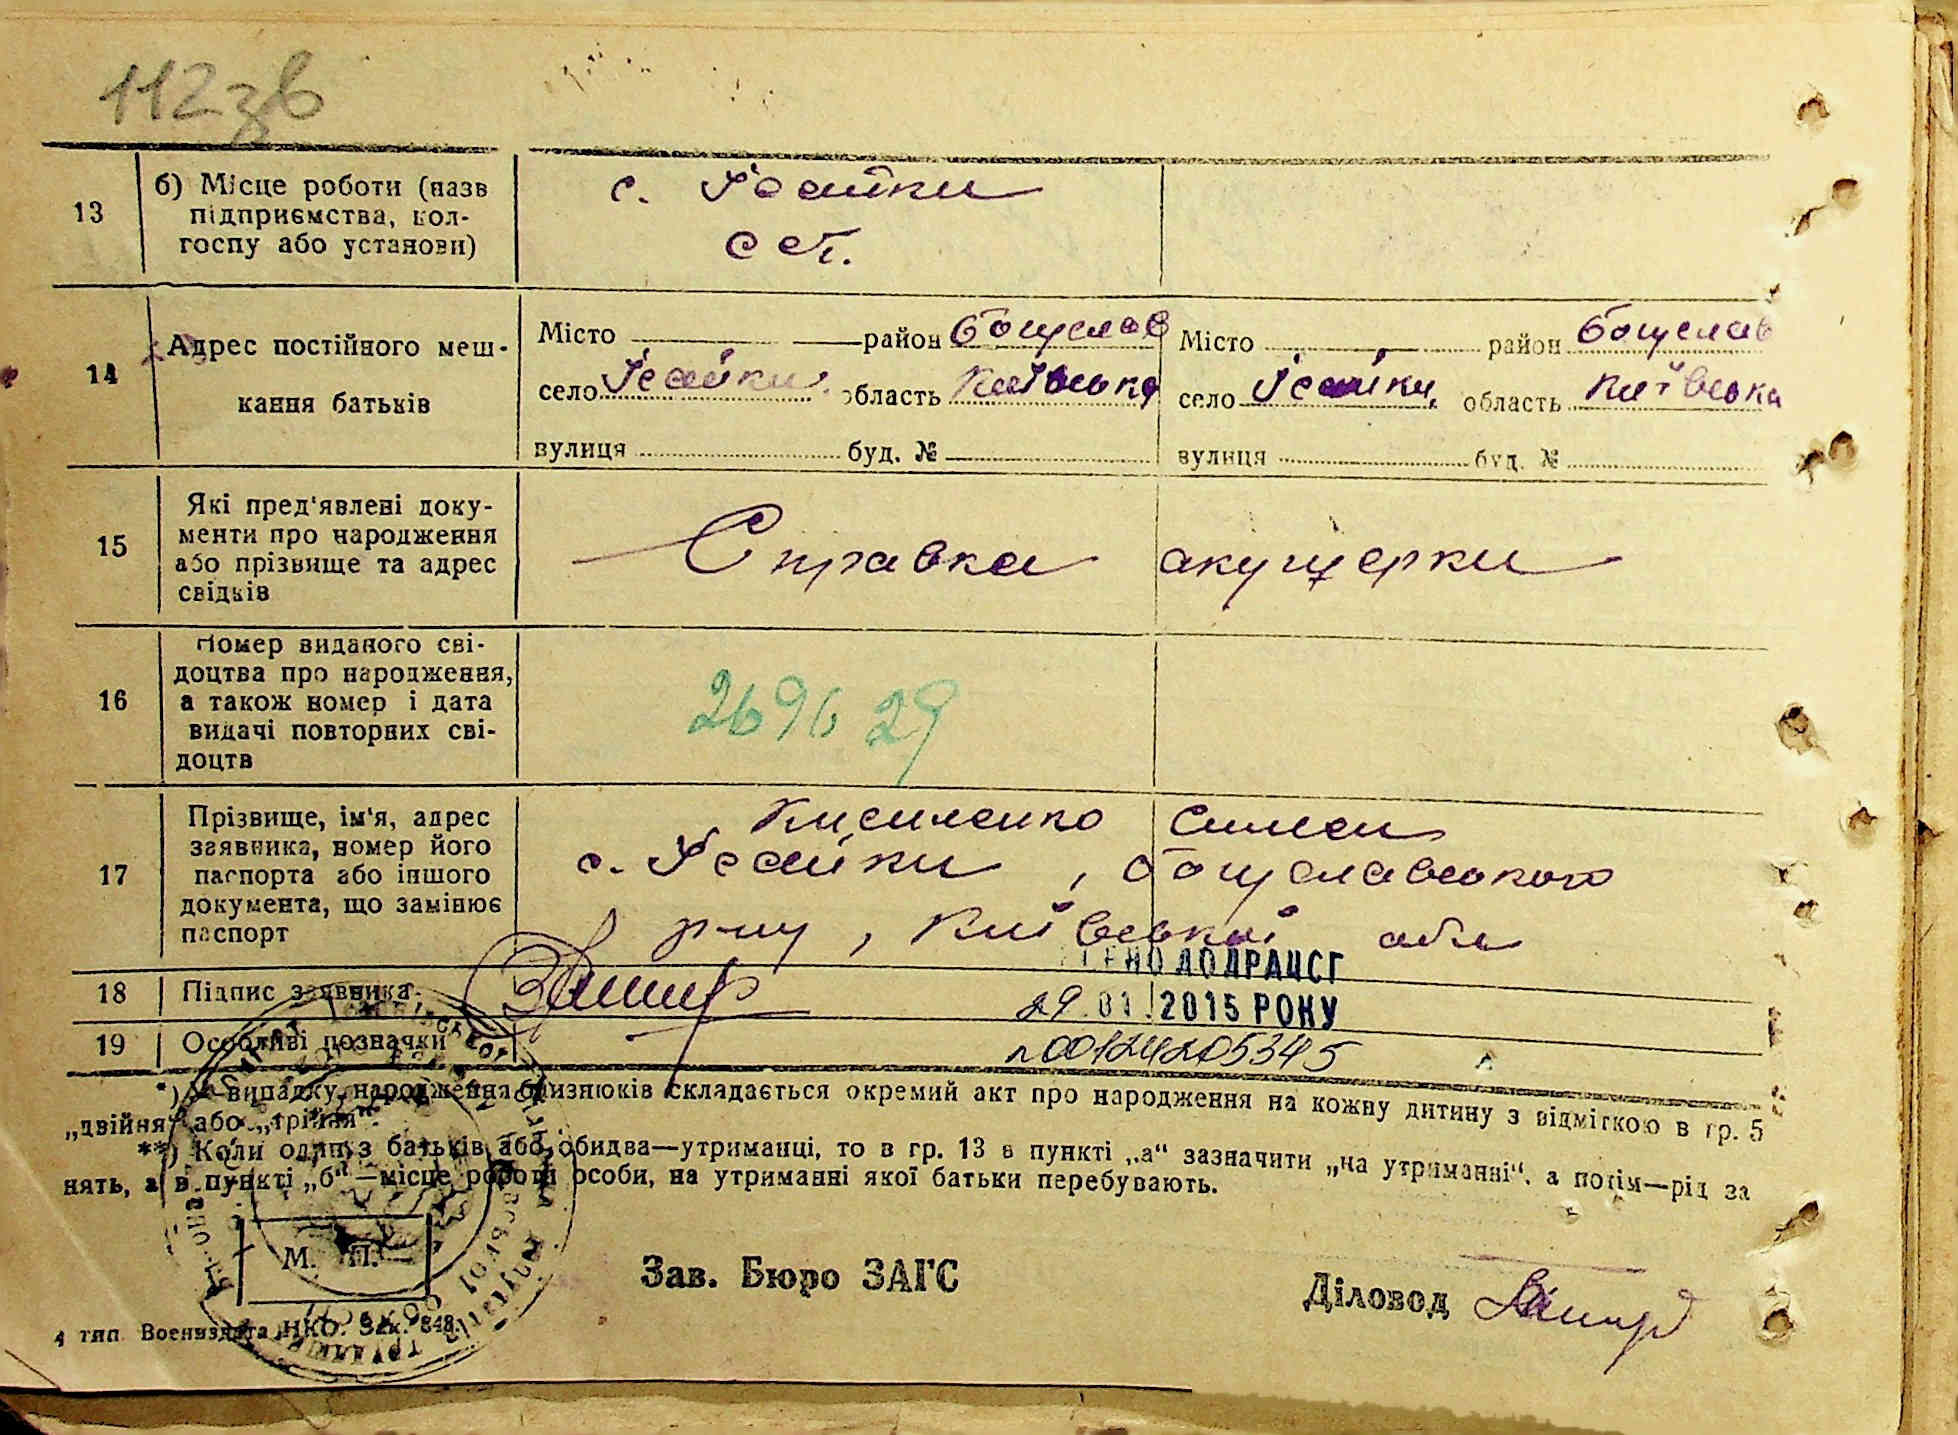 112зв
13
б) Місце роботи (назв
підприємства, кол-
госпу або установи)
с. Ісайки
14
Адрес постійного меш-
кання батьків
Місто район Богуслав
село Ісайки область Київська
вулиця буд. №
Місто район Богуслав
село Ісайки, область Київська
вулиця буд. №
15
Які пред'явлені доку-
менти про народження
або прізвище та адрес
свідків
Справка акушерки
16
Номер виданого сві-
доцтва про народження,
а також номер і дата
видачі повторних сві-
доцтв
269629
17
Прізвище, ім'я, адрес
заявника, номер його
паспорта або іншого
документа, що замінює
паспорт
с. Ісайки, Богуславського
р-ну, Київської обл
18
Підпис заявника
ДО ДРАЦСГ
29.01.2015 РОКУ
19
Особливі позначки
00124205345
*) У випадку народження близнюків складається окремий акт про народження на кожну дитину з відміткою в гр. 5
„двійня" або „трійня".
**) Коли один з батьків або обидва—утриманці, то в гр. 13 в пункті „а" зазначити „на утриманні", а потім—рід за
нять, а в пункті „б"—місце роботи особи, на утриманні якої батьки перебувають.
М. П.
Зав. Бюро ЗАГС
Діловод
4 тип. Воениздата НКО. Зак. 848